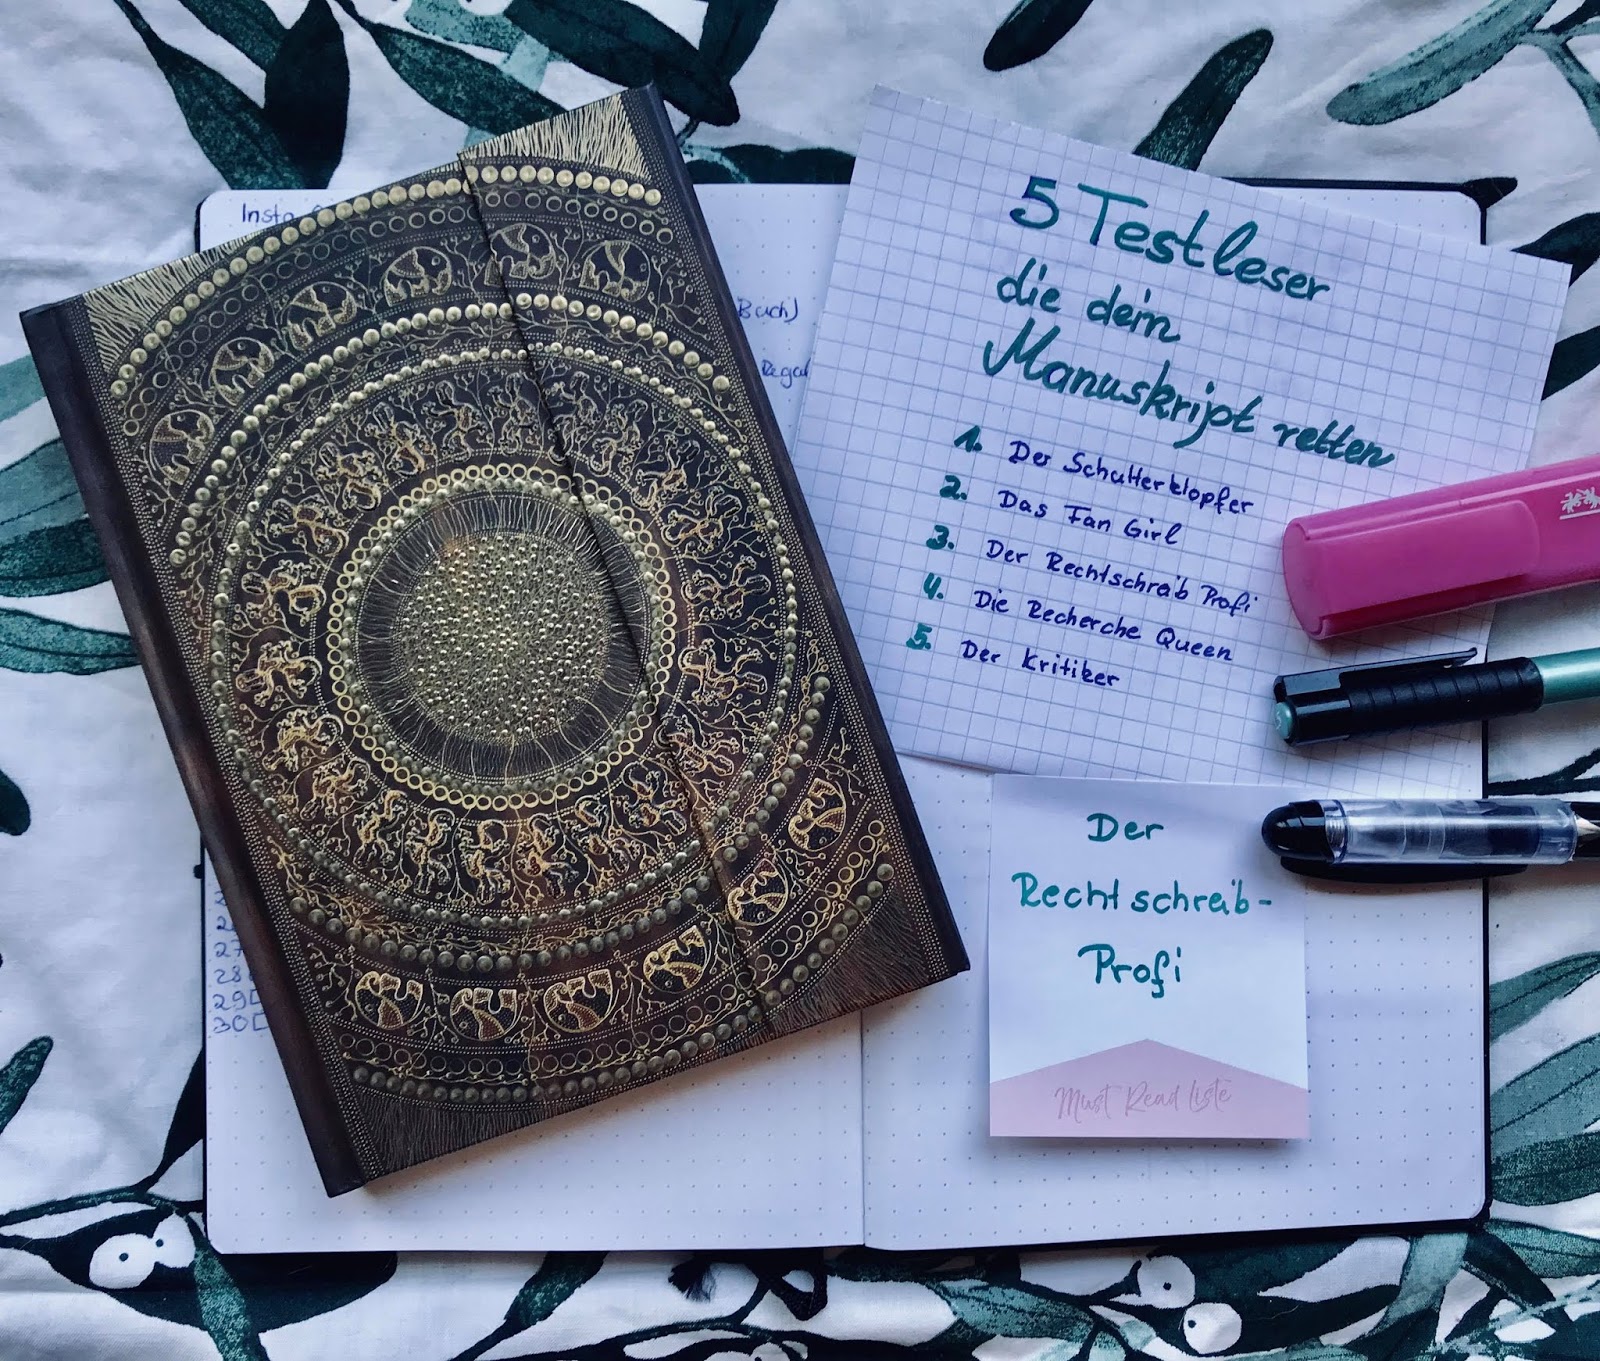 Insta
Buch)
5 Testleser
die dein
Manuskript retten
1. Der Schulterklopfer
2. Das Fan Girl
3. Der Rechtschreib Profi
4. Die Recherche Queen
5. Der Kritiker
27
28
29
30
Der
Rechtschreib-
Profi
Must Read Liste